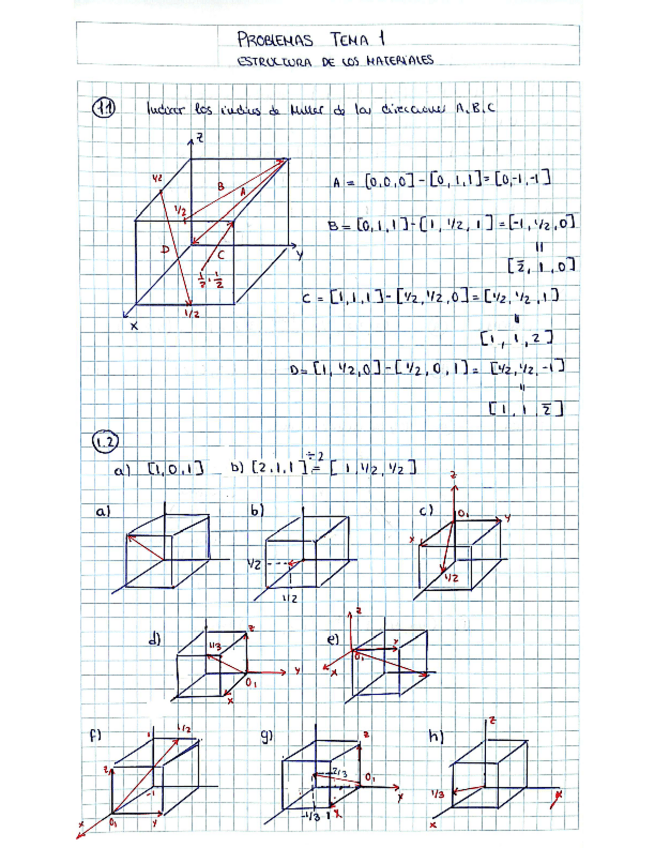 PROBLEMAS TEMA 1
ESTRUCTURA DE LOS MATERIALES
1.1 Indicar los indices de Miller de las direcciones A, B, C
Z
1/2
B
A
1/2
D
C
Y
1/2, 1/2
X
1/2
A = [0,0,0] - [0,1,1] = [0,-1,-1]
B = [0,1,1] - [1,1/2,1] = [-1,1/2,0]
=
[2̅,1,0]
C = [1,1,1] - [1/2,1/2,0] = [1/2,1/2,1]
=
[1,1,2]
D = [1,1/2,0] - [1/2,0,1] = [1/2,1/2,-1]
=
[1,1,2̅]
1.2
a) [1,0,1] b) [2,1,1] ÷2 = [1,1/2,1/2]
a)
b)
1/2
1/2
c)
Z
O1
Y
X
1/2
d)
1/3
Z
Y
O1
X
e)
Z
O1
Y
X
f)
1
1/2
Z
-1
O1
Y
X
g)
Z
2/3
O1
Y
-1/3
1
X
h)
Z
1/3
X
Y